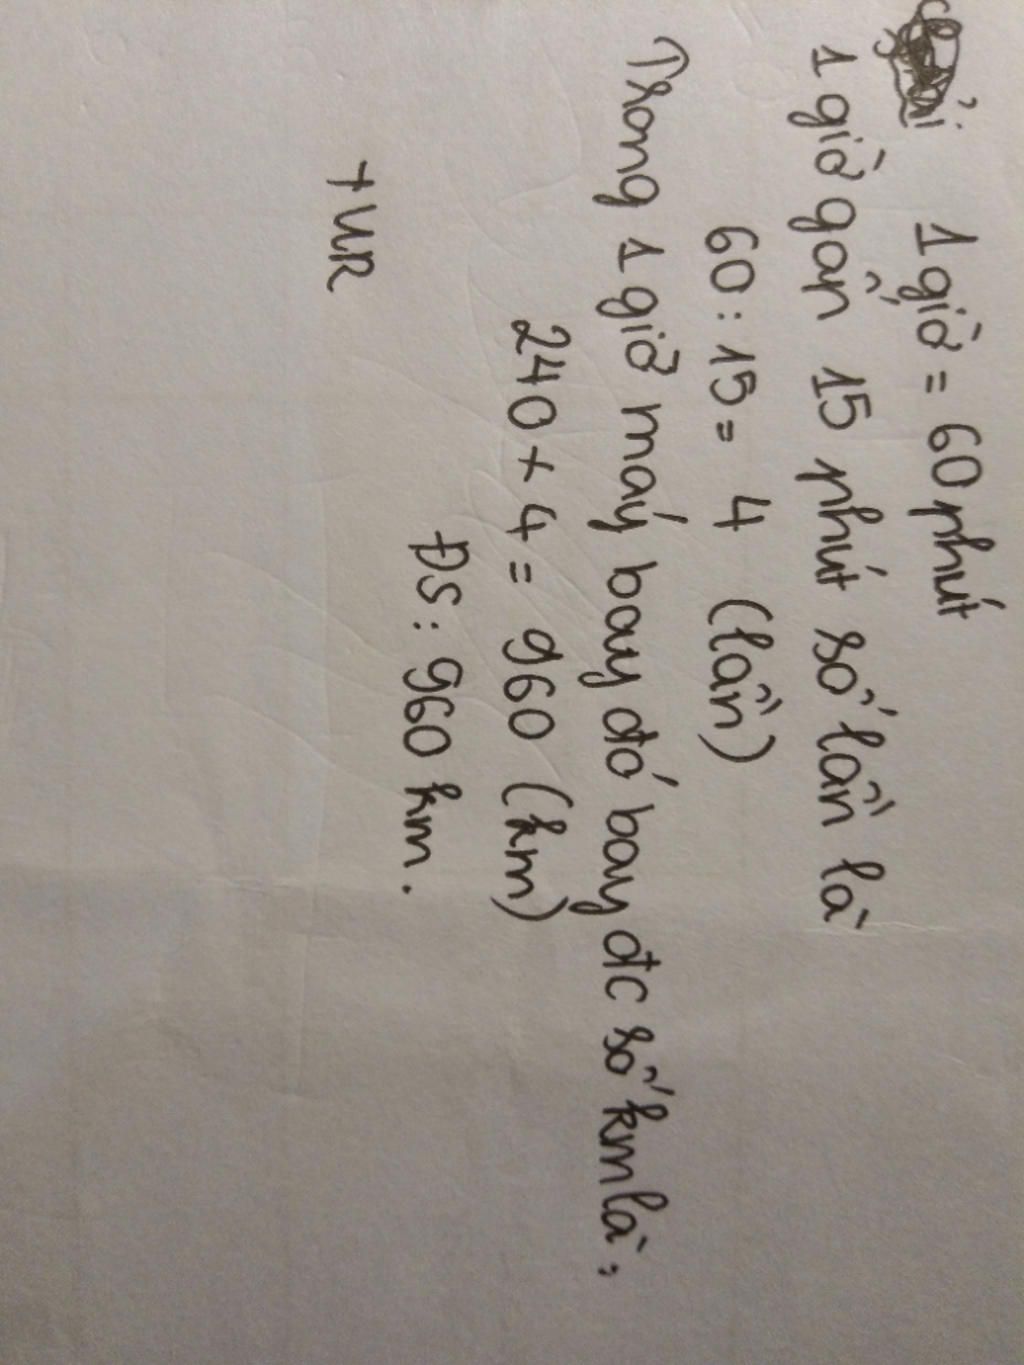 1 giờ = 60 phút
1 giờ gấp 15 phút số lần là
60 : 15 = 4 (lần)
Trong 1 giờ máy bay đó bay đc số km là:
240 x 4 = 960 (km)
ĐS: 960 km.